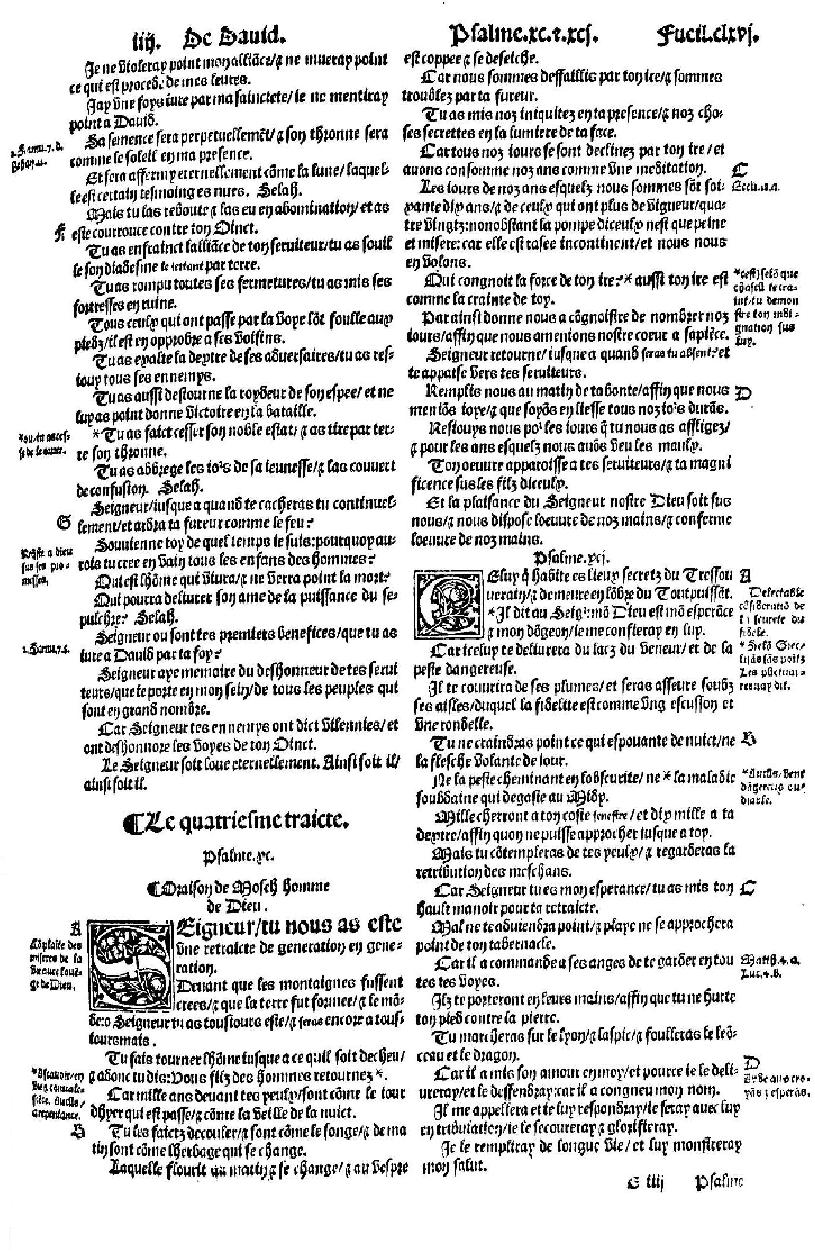 iiij. De Dauid.
Je ne violeray point mon alliãce/⁊ ne mueray point
ce qui est procede de mes leures.
Jay vne foys iure par ma sainctete/ie ne mentiray
point a Dauid.
Sa semence sera perpetuellemẽt/⁊ son throsne sera
comme le soleil en ma presence.
Et sera afferm eternellement cõme la lune/laquel-
le est certain tesmoing es nues. Selah.
Mais tu las reboute ⁊ las eu en abomination/et as
este courrouce contre ton Oinct.
Tu as enfrainct lalliãce de ton seruiteur/tu as souil
le son diadesme le iettant par terre.
Tu as rompu toutes ses fermetures/tu as mis ses
fortresses en ruine.
Tous ceulx qui ont passe par la voye lõt foulle aux
piedz/il est en opprobre a ses voisins.
Tu as exalte la dextre de ses aduersaires/tu as res-
iouy tous ses ennemys.
Tu as aussi destourne la roydeur de son espee/et ne
luy as point donne victoire en la bataille.
*Tu as faict cesser son noble estat/⁊ as tire par ter-
re son throsne.
Tu as abbrege les io's de sa ieunesse/⁊ las couuert
de confusion. Selah.
Seigneur/iusque a quãd te cacheras tu continuel-
lement/et ardra ta fureur comme le feu?
Souuienne toy de quel temps ie suis: pourquoy au-
rois tu cree en vain tous les enfans des hommes?
Qui est lhõme qui viura/⁊ ne verra point la mort?
Qui pourra deliurer son ame de la puissance du se-
pulchre? Selah.
Seigneur ou sont tes premiers benefices/que tu as
iure a Dauid par ta foy?
Seigneur aye memoire du deshonneur de tes serui
teurs/que ie porte en mon sein/de tous les peuples qui
sont en grand nombre.
Car Seigneur tes ennemys ont dict villennies/et
ont deshonnore les voyes de ton Oinct.
Le Seigneur soit loue eternellement. Ainsi soit il/
ainsi soit il.
¶Le quatriesme traicte.
Psalme.xc.
¶Oraison de Moseh homme
de Dieu.
A
Seigneur/tu nous as este
vne retraicte de generation en gene-
ration.
Deuant que les montaignes fussent
creees/⁊ que la terre fut formee/⁊ le mõ-
de: o Seigneur tu as tousiours este/⁊ seras encore a tous-
iours mais.
Tu fais tourner lhõme iusque a ce quil soit decheu/
⁊ adonc tu dis: Vous filz des hommes retournez *.
Car mille ans deuant tes yeulx/sont cõme le iour
dhyer qui est passe/⁊ cõme la veille de la nuict.
B
Tu les faictz decouler/⁊ sont cõme le songe/⁊ de ma
tin sont comme lherbage qui se change.
Laquelle flourit au matin/⁊ se change/⁊ au vespre
Psalme.xc.⁊.xcj.
Fueil.clxvj.
est coppee ⁊ se deseiche.
Car nous sommes deffaillis par ton ire/⁊ sommes
troublez par ta fureur.
Tu as mis noz iniquitez en ta presence/⁊ noz cho-
ses secrettes en la lumiere de ta face.
Car tous noz iours se sont declinez par ton ire/et
auons consomme noz ans comme vne meditation.
C
Les iours de noz ans esquelz nous sommes sõt soi-
xante dix ans/⁊ de ceulx qui ont plus de vigueur/qua-
tre vingtz: nonobstant la pompe diceulx nest que peine
et misere: car elle est rasee incontinent/et nous nous
en volons.
Qui congnoit la force de ton ire? * aussi ton ire est
comme la crainte de toy.
Par ainsi donne nous a cõgnoistre de nombrer noz
iours/affin que nous amenions nostre coeur a sapiẽce.
Seigneur retourne/iusque a quand seras tu absent? et
te appaise vers tes seruiteurs.
D
Remplis nous au matin de ta bonte/affin que nous
meniõs ioye/⁊ que soyõs en liesse tous noz io's durãs.
Resiouys nous po' les iours q̃ tu nous as affligez/
⁊ pour les ans esquelz nous auõs veu les maulx.
Ton oeuure apparoisse a tes seruiteurs/⁊ ta magni
ficence sus les filz diceulx.
Et la plaisance du Seigneur nostre Dieu soit sus
nous/⁊ nous dispose loeuure de noz mains/⁊ conferme
loeuure de noz mains.
Psalme.xcj.
A
Celuy q̃ habite es lieux secretz du Tressou
uerain/⁊ demeure en lõbre du Toutpuissãt.
*Il dit au Seigr: mõ Dieu est mõ esperãce
⁊ mon dõgeon/ie me confieray en luy.
Car iceluy te deliurera du lacz du veneur/et de la
peste dangereuse.
Il te couurira de ses plumes/et seras asseure soubz
ses aisles/duquel la fidelite est comme vng escusson et
vne rondelle.
B
Tu ne craindras point ce qui espouante de nuict/ne
la flesche volante de iour.
Ne la peste cheminant en lobscurite/ne * la maladie
soubdaine qui degaste au Midy.
Mille cherront a ton coste senestre/et dix mille a ta
dextre/affin quon ne puisse approcher iusque a toy.
Mais tu cõtempleras de tes yeulx/⁊ regarderas la
retribution des meschans.
C
Car Seigneur tu es mon esperance/tu as mis ton
hault manoir pour ta retraicte.
Mal ne te aduiendra point/⁊ playe ne se approchera
point de ton tabernacle.
Math.4.a.
Luc.4.b.
Car il a commande a ses anges de te garder en tou
tes tes voyes.
Ilz te porteront en leurs mains/affin que tu ne hurte
ton pied contre la pierre.
Tu marcheras sur le lyon/⁊ laspic/⁊ foulleras le leõ-
ceau et le dragon.
D
Car il a mis son amour en moy/et pource ie le deli-
ureray/et le deffendray: car il a congneu mon nom.
Il me appellera et ie luy respondray/ie seray auec luy
en tribulation/ie le secoureray ⁊ glorifieray.
Je le rempliray de longue vie/et luy monstreray
mon salut.
C iiij Psalme